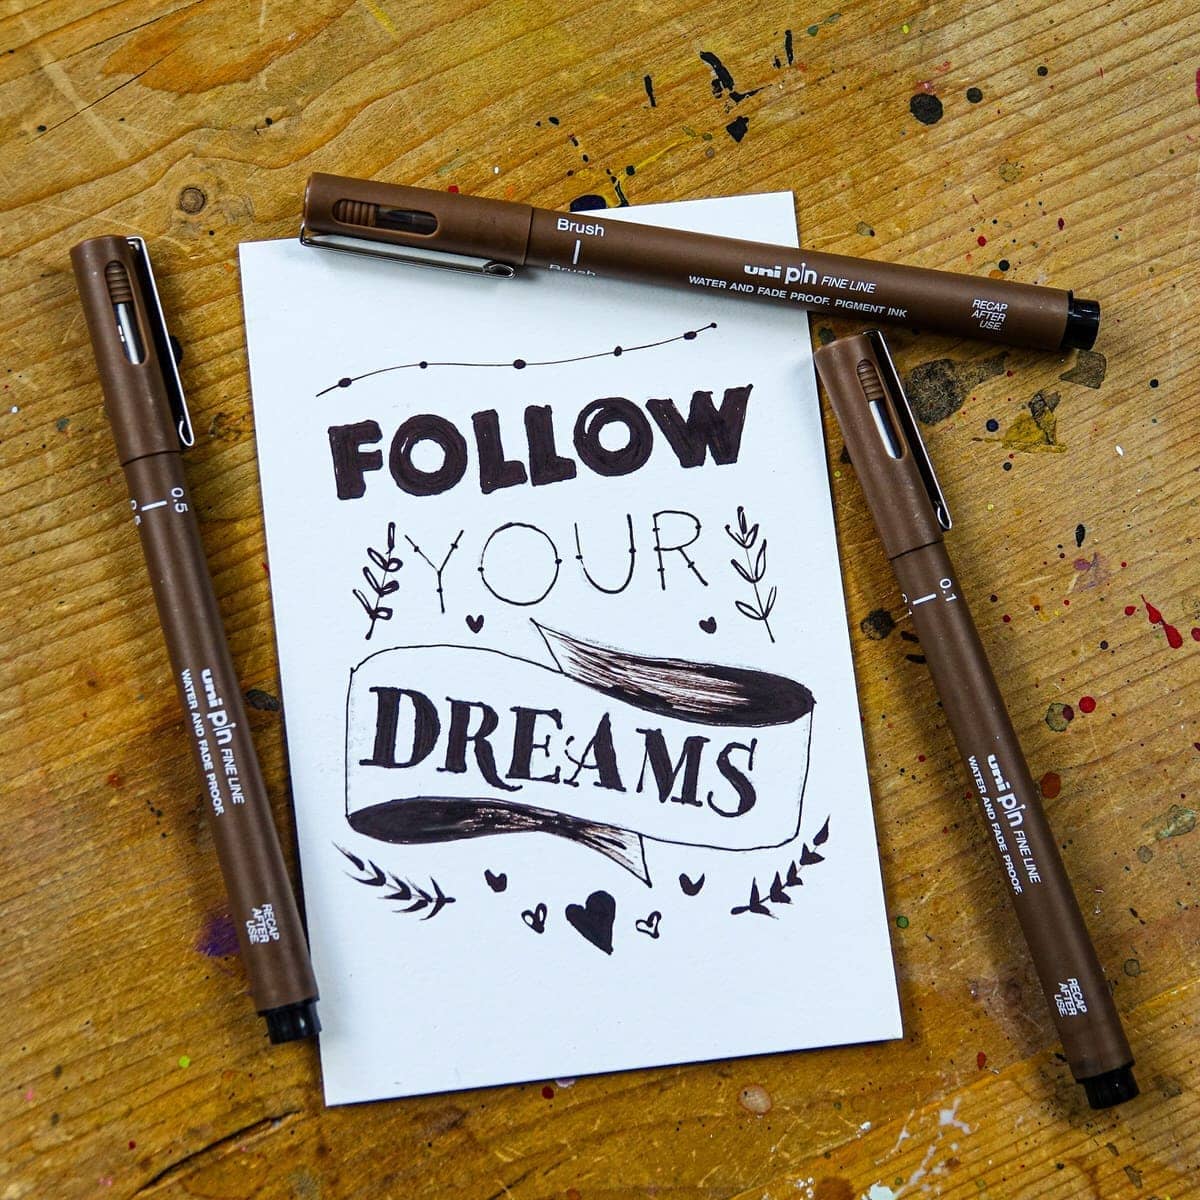 Brush
Brush
uni pin FINE LINE
WATER AND FADE PROOF. PIGMENT INK
RECAP
AFTER
USE.
FOLLOW
YOUR
DREAMS
0.5
0.5
uni pin FINE LINE
WATER AND FADE PROOF.
RECAP
AFTER
USE.
0.1
0.1
uni pin FINE LINE
WATER AND FADE PROOF.
RECAP
AFTER
USE.